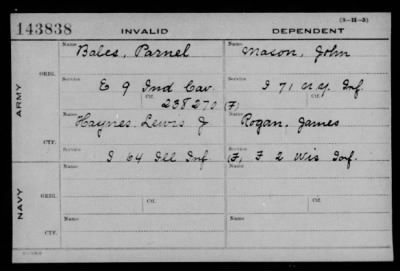 (3-II-3)
143838 INVALID DEPENDENT
Name Bales, Parnel Name Mason, John
ORIG.
Service E 9 Ind Cav. Service I 71 N.Y. Inf.
Ctf. 238270 (F) Ctf.
ARMY
Name Haynes Lewis J Name Rogan, James
CTF.
Service I 64 Ill Inf. Service (F) F 2 Wis Inf.
Name Name
ORIG.
Service Ctf. Service Ctf.
NAVY
Name Name
CTF.
Service Service